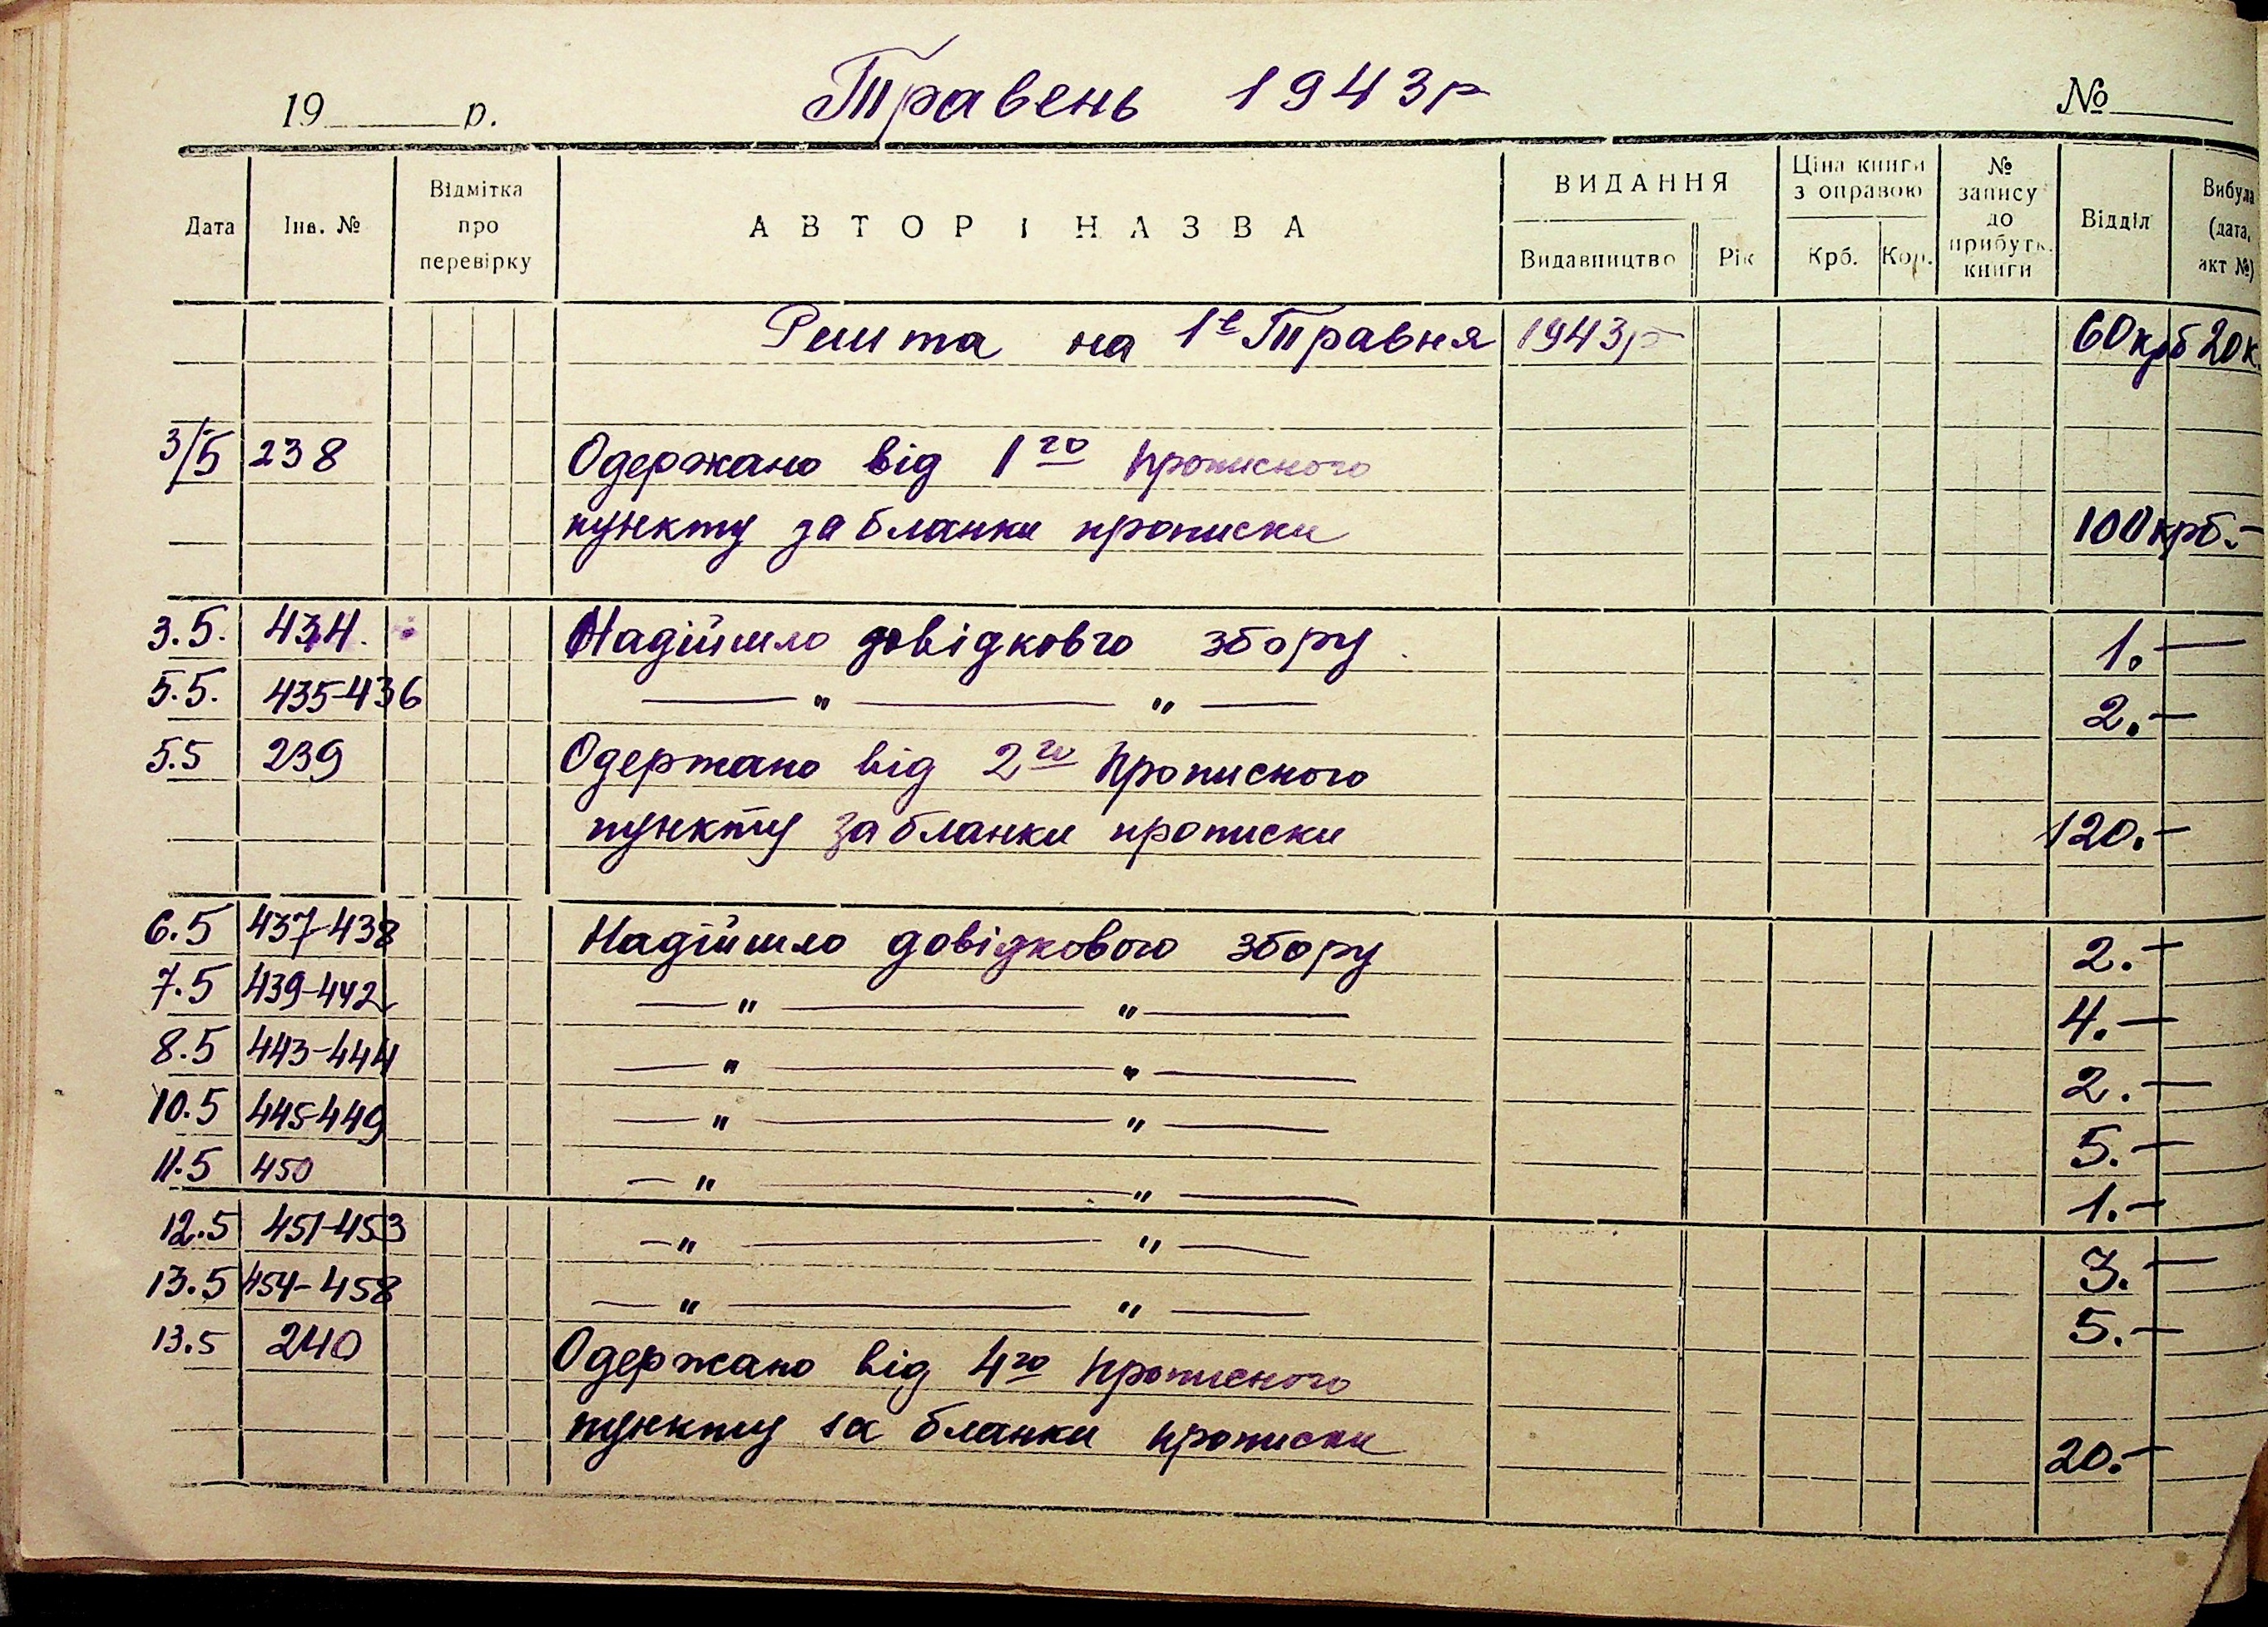 19 р. Травень 1943р №
Дата Інв. № Відмітка про перевірку АВТОР І НАЗВА ВИДАННЯ Видавництво Рік Ціна книги з оправою Крб. Коп. № запису до прибутк. книги Відділ Вибула (дата, акт №)
Решта на 1е Травня 1943р 60крб 20к.
3/5 238 Одержано від 1го прописного
пункту за бланки прописки 100крб.-
3.5. 434. Надійшло довідковго збору. 1.—
5.5. 435-436 —— " —— " —— 2.—
5.5 239 Одержано від 2го прописного
пункту за бланки прописки 120.-
6.5 437-438 Надійшло довідкового збору 2.—
7.5 439-442 —— " —— " —— 4.—
8.5 443-444 —— " —— " —— 2.—
10.5 445-449 —— " —— " —— 5.—
11.5 450 — " —— " —— 1.—
12.5 451-453 — " —— " —— 3.—
13.5 454-458 — " —— " —— 5.—
13.5 240 Одержано від 4го прописного
пункту за бланки прописки 20.—